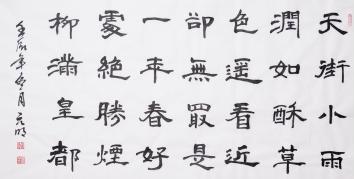 天街小雨
潤如酥草
色遥看近
卻無最是
一年春好
處絕勝煙
柳滿皇都
壬辰年冬月元明